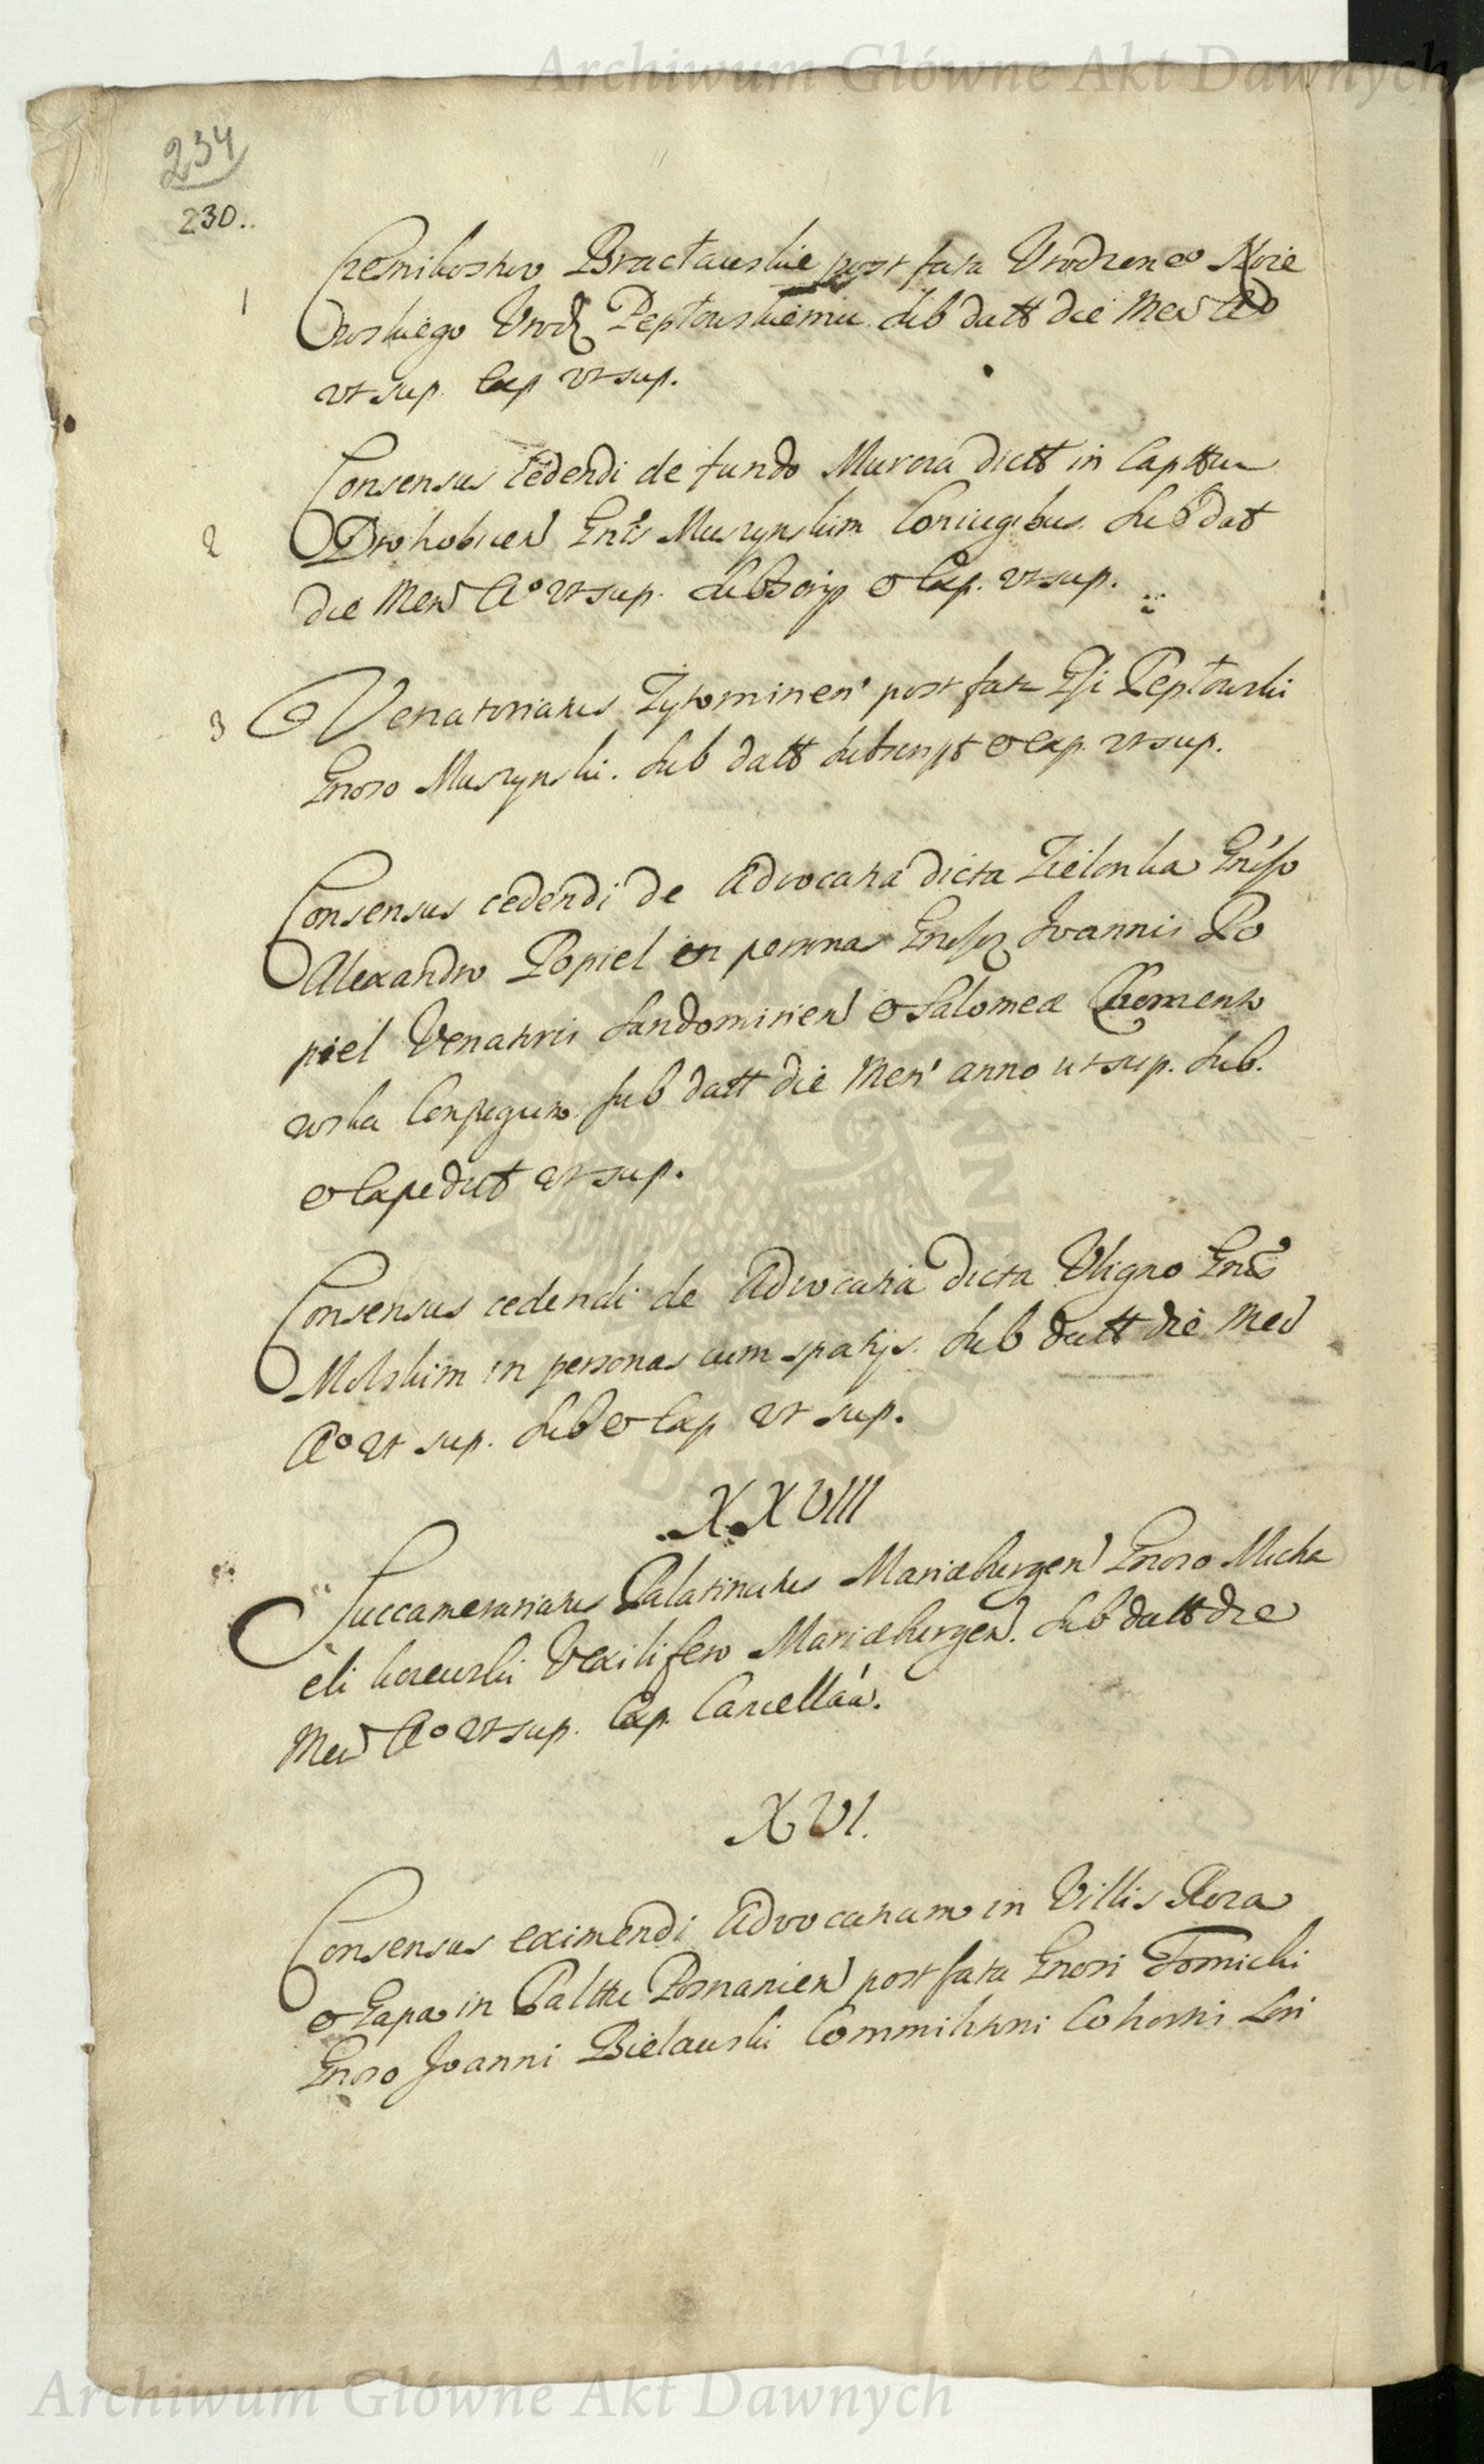 Archiwum Główne Akt Dawnych
234
230..
1
Czesnikostwo Bracławskie post fata Vrodzone°
wskiego Vrodz Peptowskiemu. Sub datt die Men Ao
vt sup. Exp vt sup.
2
Consensus cedendi de fundo dictt in Capttu
Drohobicen Gnris Muszynskim Coniugibus. Sub dat
die Men A° vt sup. Subscrip & Exp. vt sup.
3
Venatoriatus Zytominen post fata Peptowski
Gnoso Muszynski. Sub datt subscript & exp. vt sup.
Consensus cedendi de Advocatia dicta Zielonka
Alexandro Popiel in personas Joannis Po
piel Venatoris Sandomirien & Salomeae
wska Conjugum. Sub datt die Men anno ut sup. Sub.
& Expedit vt sup.
Consensus cedendi de Advocatia dicta Gnris
Molskim in personas cum spatijs. Sub datt die Men
A° vt sup. Sub & Exp vt sup.
XXVIII
Succamerariatus Palatinatus Mariaeburgen Gnoso Micha
eli Vexilifero Mariaeburgen. Sub datt die
Men A° vt sup. Exp. Cancellar.
XVI.
Consensus eximendi Advocatiam in Villis
& in Palttu Posnanien post fata Gnosi Tomicki
Gnoso Joanni Bielawski Commilitoni Cohortis
Archiwum Główne Akt Dawnych